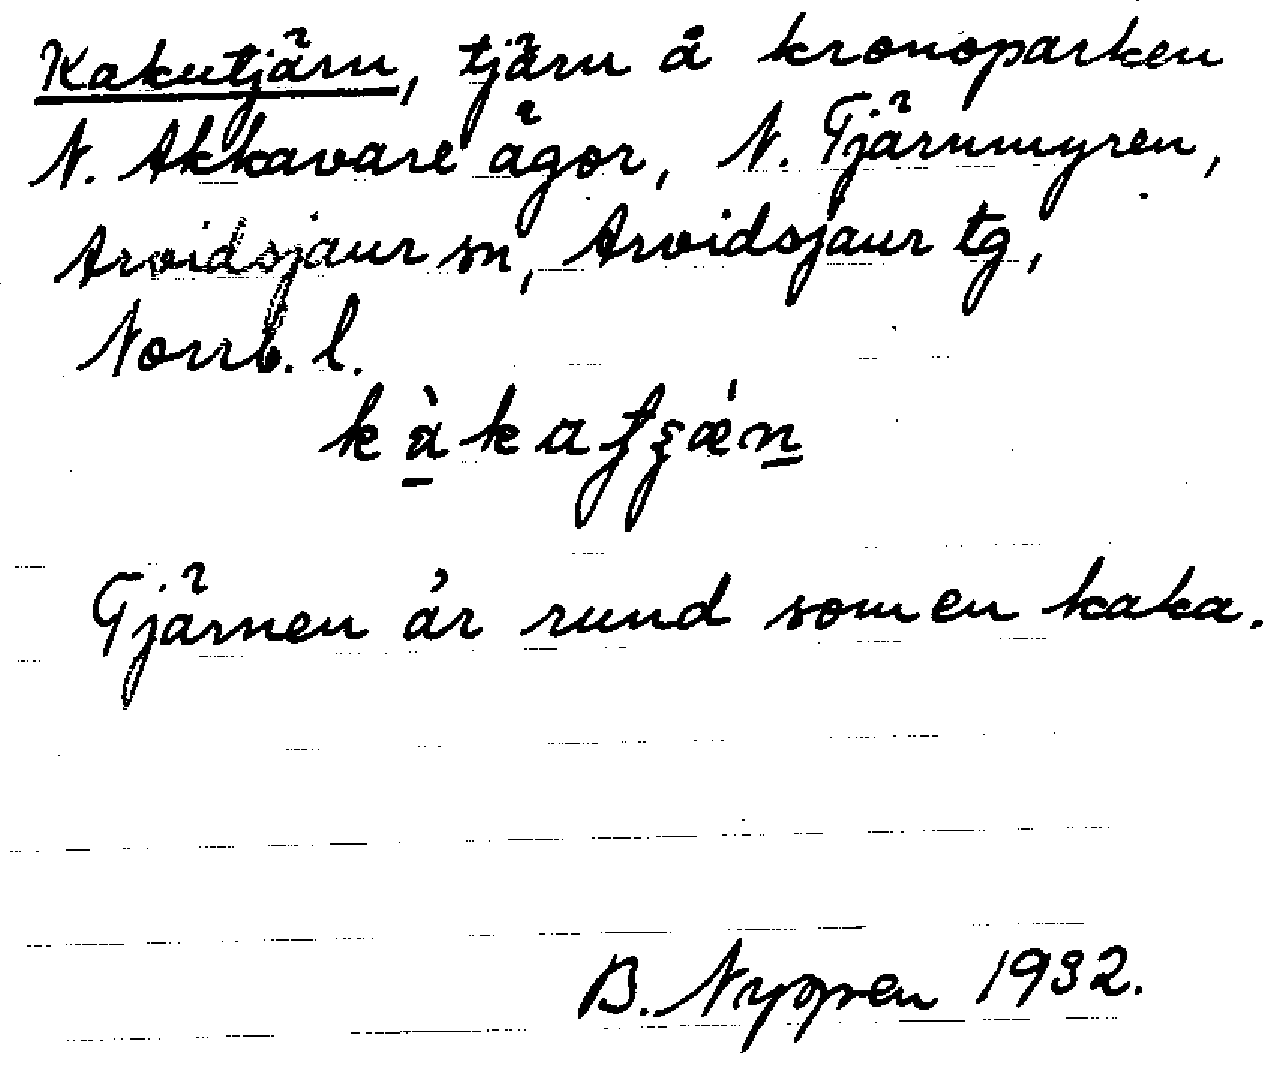 Kakutjärn, tjärn å kronoparken
N. Akkavare ägor, N. Tjärnmyren,
Arvidsjaur sn, Arvidsjaur tg,
Norrb. l.
Tjärnen är rund som en kaka.
B. Nygren 1932.